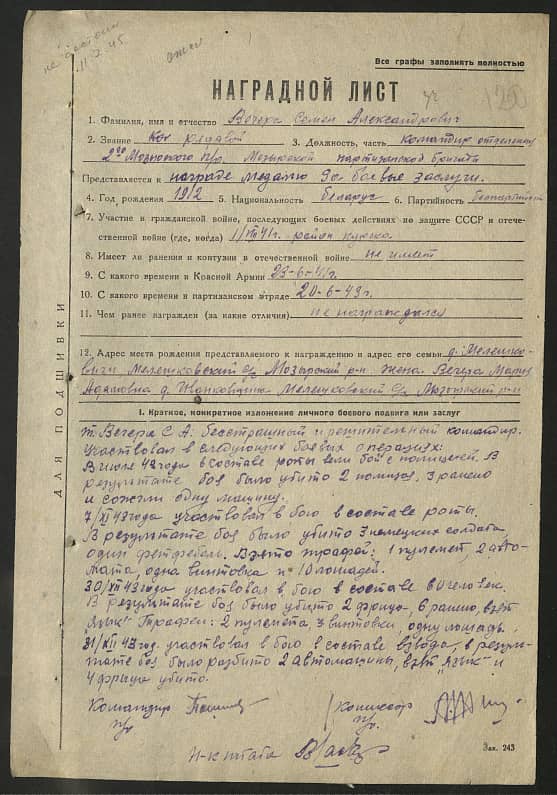 не достоин
11.2.45
Все графы заполнять полностью
НАГРАДНОЙ ЛИСТ
1. Фамилия, имя и отчество Вечера Семен Александрович
2. Звание рядовой 3. Должность, часть командир отделения
2го Мозырского п/о. Мозырской партизанской бригады
Представляется к награде медалью За боевые заслуги.
4. Год рождения 1912 5. Национальность беларус 6. Партийность беспартийный
7. Участие в гражданской войне, последующих боевых действиях по защите СССР и отече-
ственной войне (где, когда) 41г. район
8. Имеет ли ранения и контузии в отечественной войне не имеет
9. С какого времени в Красной Армии 23-6-41г.
10. С какого времени в партизанском отряде 20-6-43г.
11. Чем ранее награжден (за какие отличия) не награждался
12. Адрес места рождения представляемого к награждению и адрес его семьи д. Мелешко-
вичи Мелешковский с/с Мозырский р-н жена Вечера Мария
Адамовна д. Мелешковский с/с Мозырский р-н
ДЛЯ ПОДШИВКИ
I. Краткое, конкретное изложение личного боевого подвига или заслуг
т. Вечера С А: бесстрашный и решительный командир.
Участвовал в следующих боевых операциях:
В июле 43 года в составе роты вели бой с полицией. В
результате боя было убито 2 полицая, 3 ранено
и сожгли одну машину.
7/XI 43 года участвовал в бою в составе роты.
В результате боя было убито 3 немецких солдата,
один фельдфебель. Взято трофей: 1 пулемет, 2 авто-
мата, одна винтовка и 10 лошадей.
30/XII 43 года участвовал в бою в составе человек.
В результате боя было убито 2 фрица, 6 ранено, взят
"язык" Трофеи: 2 пулемета, 3 винтовки, одну лошадь.
31/XII 43 год. участвовал в бою в составе взвода, в резуль-
тате боя было разбито 2 автомашины, взят "язык" и
4 фрица убито.
Командир Комиссар
п/о. п/о.
н-к штаба
Зак. 243